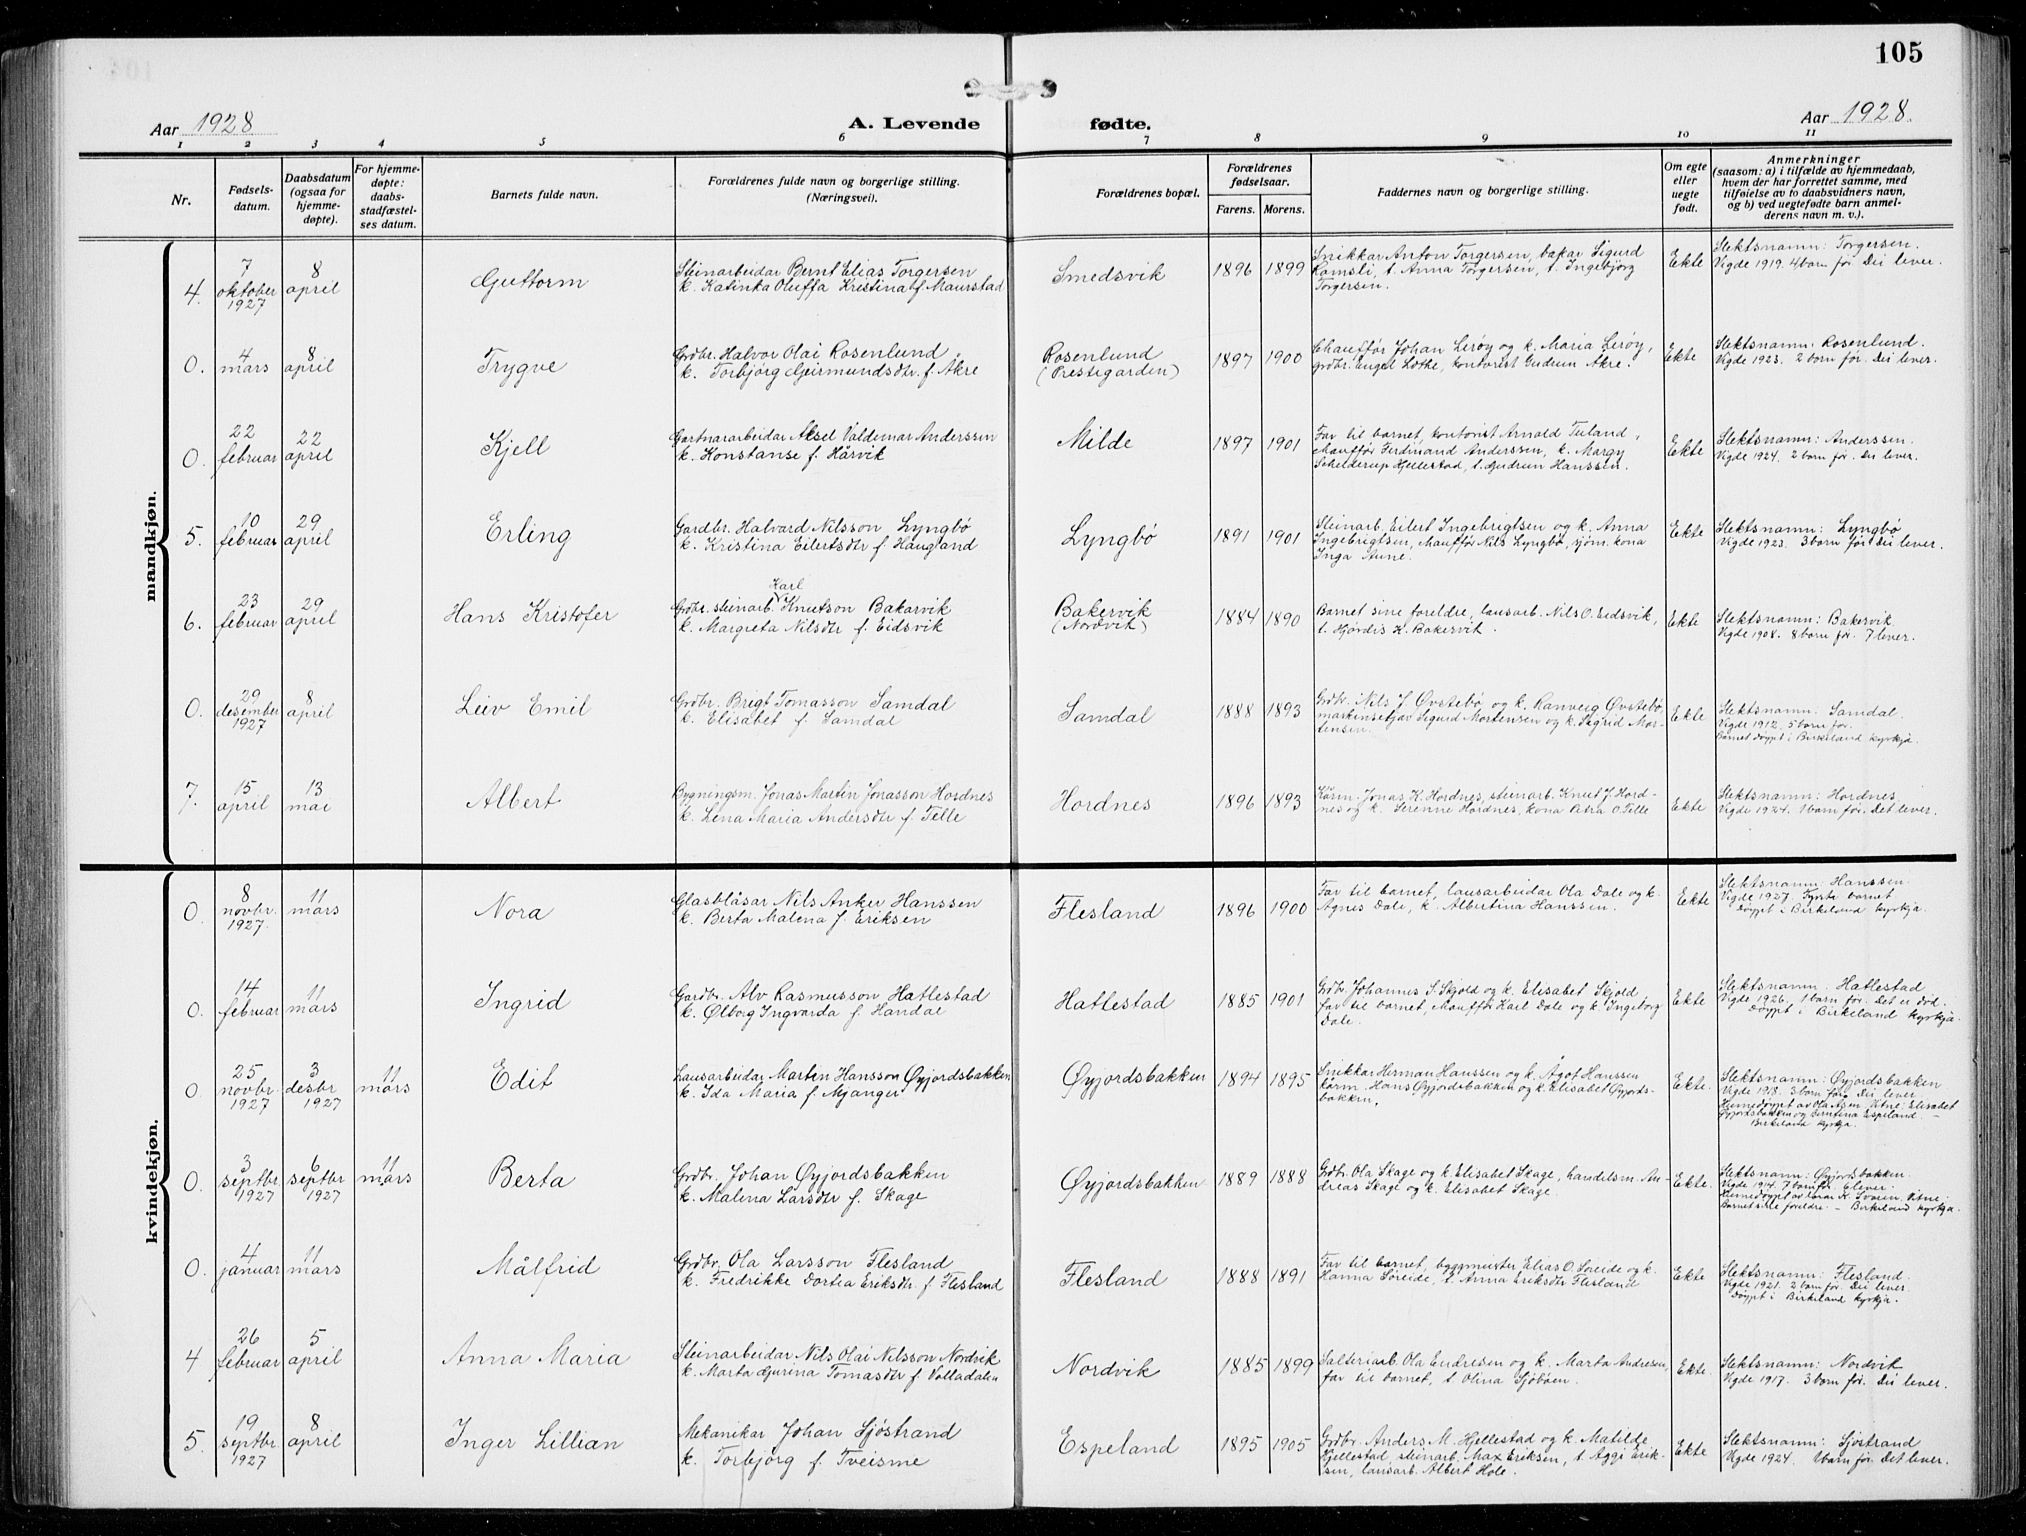 105
Aar 1928
A. Levende fødte.
Aar 1928.
1 2 3 4 5 6 7 8 9 10 11
Nr.
Fødsels-
datum.
Daabsdatum
(ogsaa for
hjemme-
døpte).
For hjemme-
døpte:
daabs-
stadfæstel-
ses datum.
Barnets fulde navn.
Forældrenes fulde navn og borgerlige stilling.
(Næringsvei).
Forældrenes bopæl.
Forældrenes
fødselsaar.
Farens. Morens.
Faddernes navn og borgerlige stilling.
Om egte
eller
uegte
født.
Anmerkninger
(saasom: a) i tilfælde av hjemmedaab,
hvem der har forrettet samme, med
tilføielse av to daabsvidners navn,
og b) ved uegtefødte barn anmel-
derens navn m. v.).
mandkjøn.
4.
7
oktober
1927
8
april
Guttorm
Steinarbeidar Bernt Elias Torgersen
k. Katinka Oluffa Kristina f. Maurstad
Smedsvik
1896 1899
Snikkar Anton Torgersen, bakar Sigurd
Ramsli, t. Anna Torgersen, t. Ingebjørg
Torgersen.
Ekte
Slektsnamn: Torgersen.
Vigde 1919. 4 born før. Dei lever.
0.
4
mars
8
april
Trygve
Grdbr. Halvor Olai Rosenlund
k. Torbjørg Geirmundsdtr. f. Akre
Rosenlund
(Prestegarden)
1897 1900
Chauffør Johan Lerøy og k. Maria Lerøy,
grdbr. Engel Lothe, kontorist Gudrun Akre.
Ekte
Slektsnamn: Rosenlund.
Vigde 1923. 2 born før. Dei lever.
0.
22
februar
22
april
Kjell
Gartnararbeidar Aksel Valdemar Anderssen
k. Konstanse f. Hårvik
Milde
1897 1901
Far til barnet, kontorist Arnald Tuland,
chauffør Ferdinand Anderssen, k. Margy
Schelderup Hjellestad, t. Gudrun Hanssen.
Ekte
Slektsnamn: Anderssen.
Vigde 1924. 2 born før. Dei lever.
5.
10
februar
29
april
Erling
Gardbr. Halvard Nilsson Lyngbø
k. Kristina Eilertsdtr f. Haugland
Lyngbø
1891 1901
Steinarb. Eilert Ingebrigtsen og k. Anna
Ingebrigtsen, chauffør Nils Lyngbø, sjøm. kona
Inga Aune.
Ekte
Slektsnamn: Lyngbø
Vigde 1923. 3 born før. Dei lever.
6.
23
februar
29
april
Hans Kristofer
Karl
Grdbr. steinarb. Knutson Bakarvik
k. Margreta Nilsdtr f. Eidsvik
Bakervik
(Nordvik)
1884 1890
Barnet sine foreldre, lausarb. Nils O. Eidsvik,
t. Hjørdis K. Bakervik.
Ekte
Slektsnamn: Bakervik.
Vigde 1908. 8 born før. 7 lever.
0.
29
desember
1927
8
april
Leiv Emil
Grdbr. Brigt Tomasson Samdal
k. Elisabet f. Samdal
Samdal
1888 1893
Grdbr. Nils J. Øvstebø og k. Ranveig Øvstebø,
maskinsetjar Sigurd Mortensen og k. Sigrid Mor-
tensen.
Ekte
Slektsnamn: Samdal.
Vigde 1912. 5 born før.
Barnet døypt i Birkeland kyrkja.
7.
15
april
13
mai
Albert
Bygningsm. Jonas Martin Jonasson Hordnes
k. Lena Maria Andersdtr f. Telle
Hordnes
1896 1893
Kårm. Jonas K. Hordnes, steinarb. Knut J. Hord-
nes og k. Serenne Hordnes, kona Asra O. Telle
Ekte
Slektsnamn: Hordnes
Vigde 1924. 1 born før. Det lever.
kvindekjøn.
0.
8
novbr.
1927.
11
mars
Nora
Glasblåsar Nils Anker Hanssen
k. Berta Malena f. Eriksen
Flesland
1896 1900
Far til barnet, lausarbeidar Ola Dale og k.
Agnes Dale, k. Albertina Hanssen.
Ekte
Slektsnamn: Hanssen.
Vigde 1927. Fyrsta barnet
Døypt i Birkeland kyrkja.
0.
14
februar
11
mars
Ingrid
Gardbr. Alv Rasmusson Hatlestad
k. Ølborg Ingvarda f. Handal
Hatlestad
1885 1901
Grdbr. Johannes S. Skjold og k. Elisabet Skjold
far til barnet, chauffør Karl Dale og k. Ingeborg
Dale.
Ekte
Slektsnamn: Hatlestad
Vigde 1926. 1 born før. Det er død.
Døypt i Birkeland kyrkja.
0.
25
novbr.
1927
3
desbr
1927
11
mars
Edit
Lausarbeidar Marten Hansson Øyjordsbakken
k. Ida Maria f. Mjanger
Øyjordsbakken
1894 1895
Snikkar Herman Hanssen og k. Ågot Hanssen
kårm. Hans Øyjordsbakken og k. Elisabet Øyjords-
bakken.
Ekte.
Slektsnamn: Øyjordsbakken
Vigde 1918. 3 born før. Dei lever.
Heimedøypt av Ola Åsen. Vitne: Elisabet
Øyjordsbakken og Berntina Espeland. –
Birkeland kyrkja.
0.
3
septbr.
1927
6
septbr
1927
11
mars
Berta
Grdbr. Johan Øyjordsbakken
k. Malena Larsdtr f. Skage
Øyjordsbakken
1889 1888
Grdbr. Ola Skage og k. Elisabet Skage, handelsm. An-
dreas Skage og k. Elisabet Skage.
Ekte.
Slektsnamn: Øyjordsbakken.
Vigde 1914. 7 born før. 6 lever.
Heimedøypt av Lars K. Svaren. Vitne:
Barnet sine foreldre. – Birkeland kyrkja.
0.
4
januar
11
mars
Målfrid
Grdbr. Ola Larsson Flesland
k. Fredrikke Dortea Eriksdtr. f. Flesland
Flesland
1888 1891
Far til barnet, byggmeister Elias O. Søreide og k.
Hanna Søreide, t. Anna Eriksdtr Flesland
Ekte
Slektsnamn: Flesland.
Vigde 1921. 2 born før. Dei lever.
Døypt i Birkeland kyrkja.
4
26
februar
5
april
Anna Maria
Steinarbeidar Nils Olai Nilsson Nordvik
k. Marta Gurina Tomasdtr f. Valladalen
Nordvik
1885 1899
Salteriarb. Ola Endresen og k. Marta Andresen,
far til barnet, t. Olina Sjøbøen.
Ekte.
Slektsnamn: Nordvik
Vigde 1917. 3 born før. Dei lever.
5.
19
septbr.
1927
8
april
Inger Lillian
Mekanikar Johan Sjøstrand
k. Torbjørg f. Tveisme
Espeland
1895 1905
Grdbr. Anders M. Hjellestad og k. Matilde
Hjellestad, steinarb. Max Eriksen, t. Aggi Erik-
sen, lausarb. Albert Hole.
Ekte
Slektsnamn: Sjøstrand
Vigde 1924. 1 born før. Det lever.